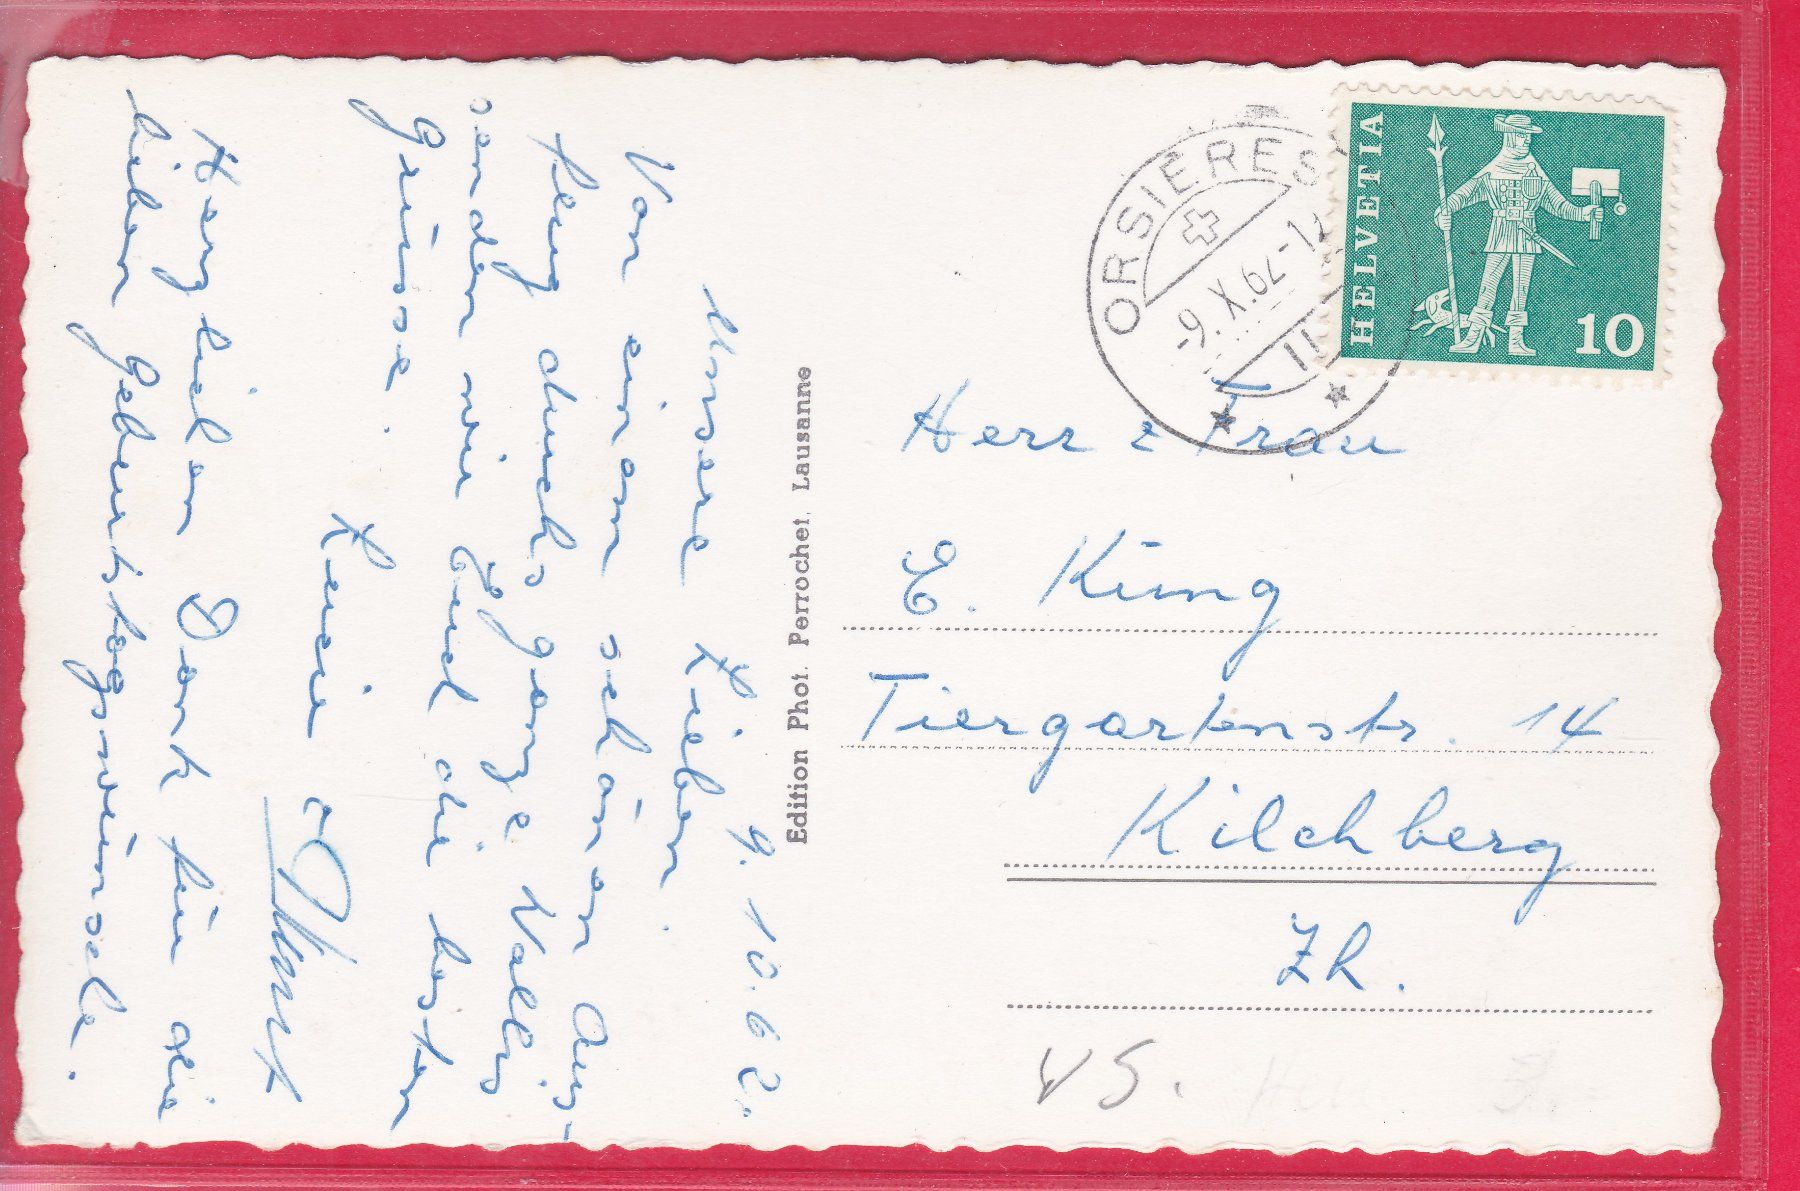 9.10.62.
Unsere Lieben.
Von einem schönen Aus-
flug durchs ganze Wallis
senden wir Euch die besten
Grüsse.
Herzlichen Dank für die
lieben Geburtstagswünsche.
Edition Phot. Perrochet, Lausanne
ORSIERES
-9.X.62-12
HELVETIA
10
Herr & Frau
E. Küng
Tiergartenstr. 14
Kilchberg
Zh.
VS.